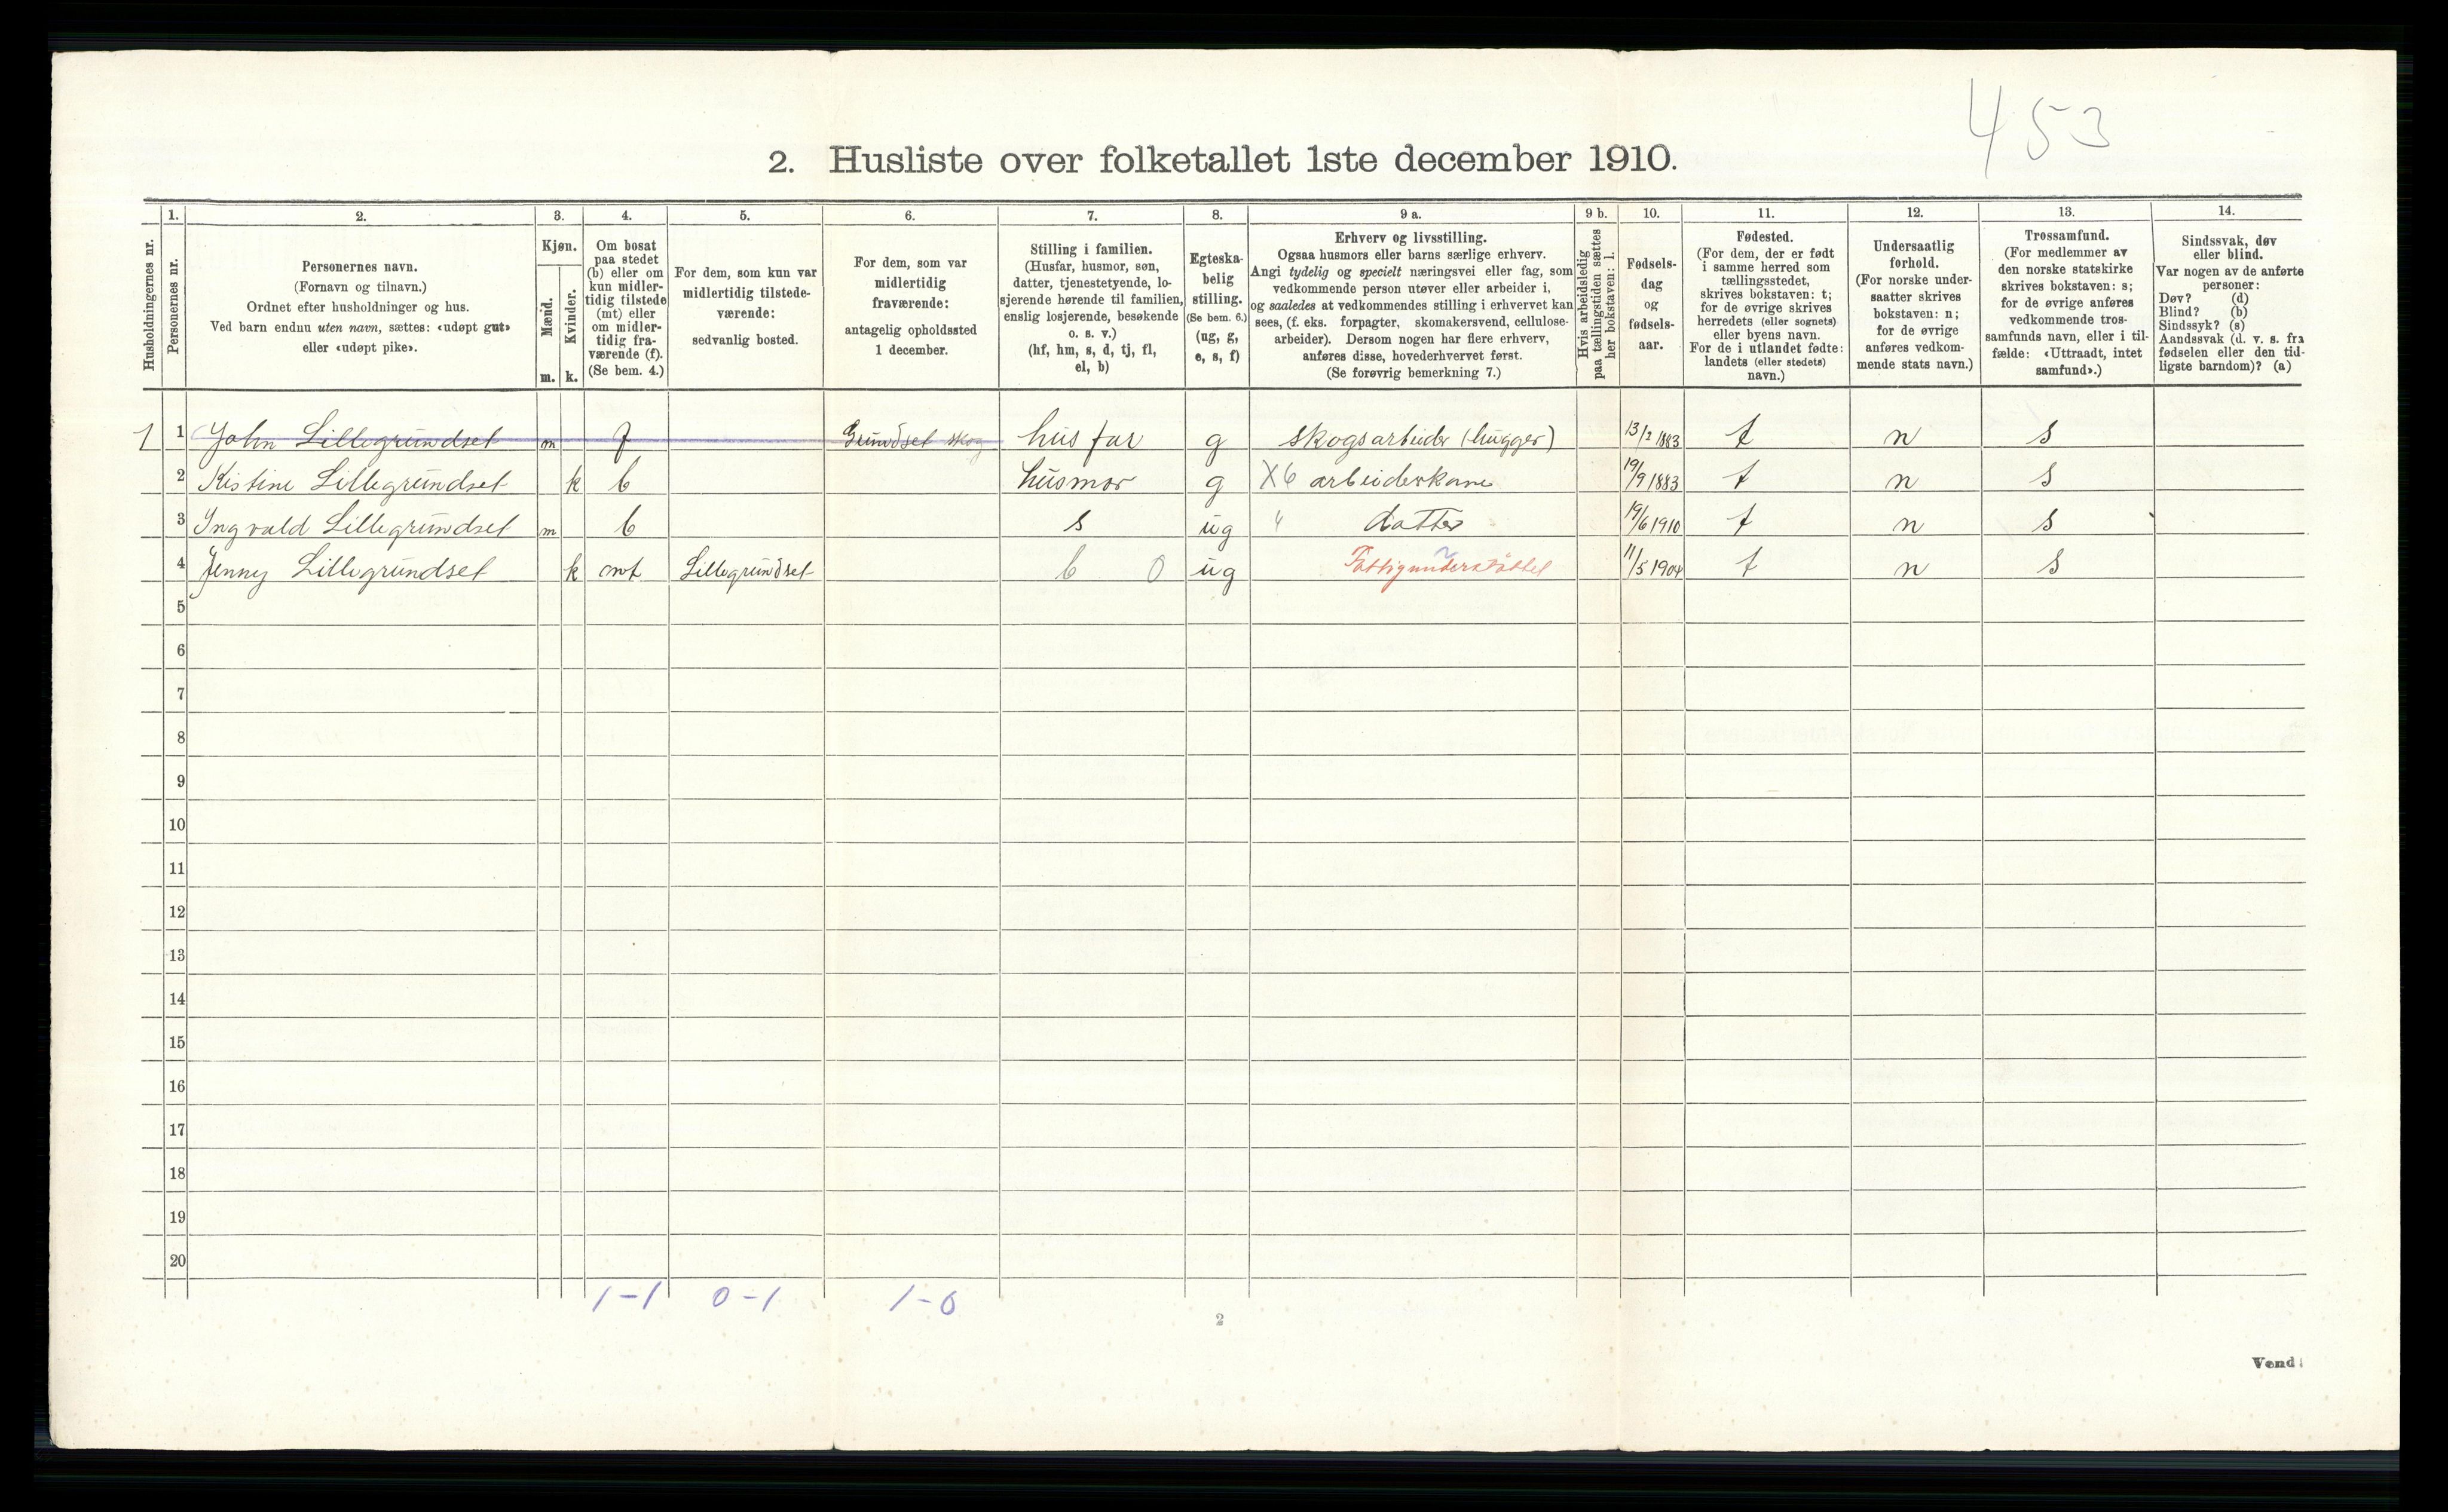 453
2. Husliste over folketallet 1ste december 1910.
1. 2. 3. 4. 5. 6. 7. 8. 9 a. 9 b. 10. 11. 12. 13. 14.
Husholdningernes nr.
Personernes nr.
Personernes navn.
(Fornavn og tilnavn.)
Ordnet efter husholdninger og hus.
Ved barn endnu uten navn, sættes: «udøpt gut»
eller «udøpt pike».
Kjøn.
Mænd.
Kvinder.
m. k.
Om bosat
paa stedet
(b) eller om
kun midler-
tidig tilstede
(mt) eller
om midler-
tidig fra-
værende (f).
(Se bem. 4.)
For dem, som kun var
midlertidig tilstede-
værende:
sedvanlig bosted.
For dem, som var
midlertidig
fraværende:
antagelig opholdssted
1 december.
Stilling i familien.
(Husfar, husmor, søn,
datter, tjenestetyende, lo-
sjerende hørende til familien,
enslig losjerende, besøkende
o. s. v.)
(hf, hm, s, d, tj, fl,
el, b)
Egteska-
belig
stilling.
(Se bem. 6.)
(ug, g,
e, s, f)
Erhverv og livsstilling.
Ogsaa husmors eller barns særlige erhverv.
Angi tydelig og specielt næringsvei eller fag, som
vedkommende person utøver eller arbeider i,
og saaledes at vedkommendes stilling i erhvervet kan
sees, (f. eks. forpagter, skomakersvend, cellulose-
arbeider). Dersom nogen har flere erhverv,
anføres disse, hovederhvervet først.
(Se forøvrig bemerkning 7.)
Hvis arbeidsledig
paa tællingstiden sættes
her bokstaven: l.
Fødsels-
dag
og
fødsels-
aar.
Fødested.
(For dem, der er født
i samme herred som
tællingsstedet,
skrives bokstaven: t;
for de øvrige skrives
herredets (eller sognets)
eller byens navn.
For de i utlandet fødte:
landets (eller stedets)
navn.)
Undersaatlig
forhold.
(For norske under-
saatter skrives
bokstaven: n;
for de øvrige
anføres vedkom-
mende stats navn.)
Trossamfund.
(For medlemmer av
den norske statskirke
skrives bokstaven: s;
for de øvrige anføres
vedkommende tros-
samfunds navn, eller i til-
fælde: «Uttraadt, intet
samfund».)
Sindssvak, døv
eller blind.
Var nogen av de anførte
personer:
Døv? (d)
Blind? (b)
Sindssyk? (s)
Aandssvak (d. v. s. fra
fødselen eller den tid-
ligste barndom)? (a)
1 1 John Lillegrundset m f Grundset skog husfar g skogsarbeider (hugger) 13/2 1883 t n s
2 Kistine Lillegrundset k b husmor g X6 arbeiderkone 19/9 1883 t n s
3 Ingvald Lillegrundset m b s ug " datter 19/6 1910 t n s
4 Jenny Lillegrundset k mt Lillegrundset b 0 ug Fattigunderstøttet 11/5 1904 t n s
5
6
7
8
9
10
11
12
13
14
15
16
17
18
19
20
1-1 0-1 1-0
2
Vend!